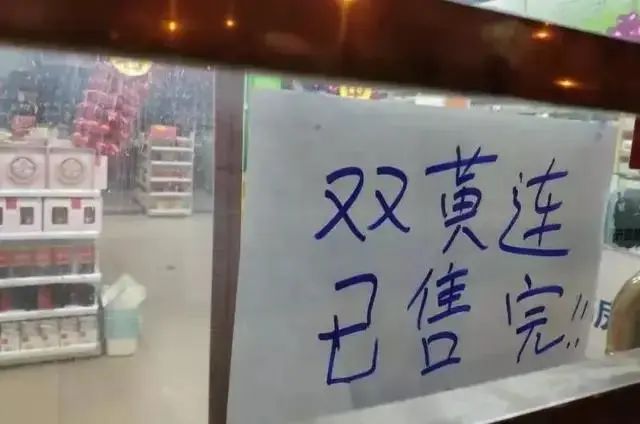 双黄连
已售完!!
房